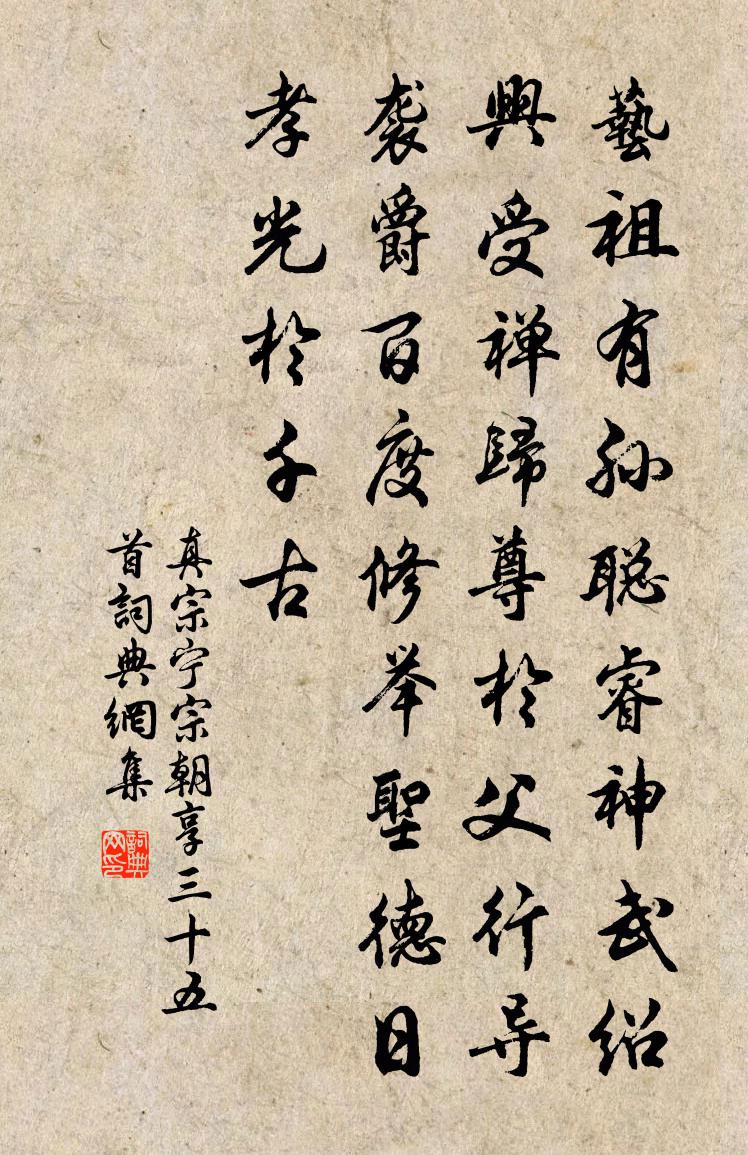 藝祖有孙聪睿神武绍
興受禅歸尊於父行导
袭爵百度修举聖德日
孝光於千古
真宗宁宗朝享三十五
首詞典網集
詞典網印